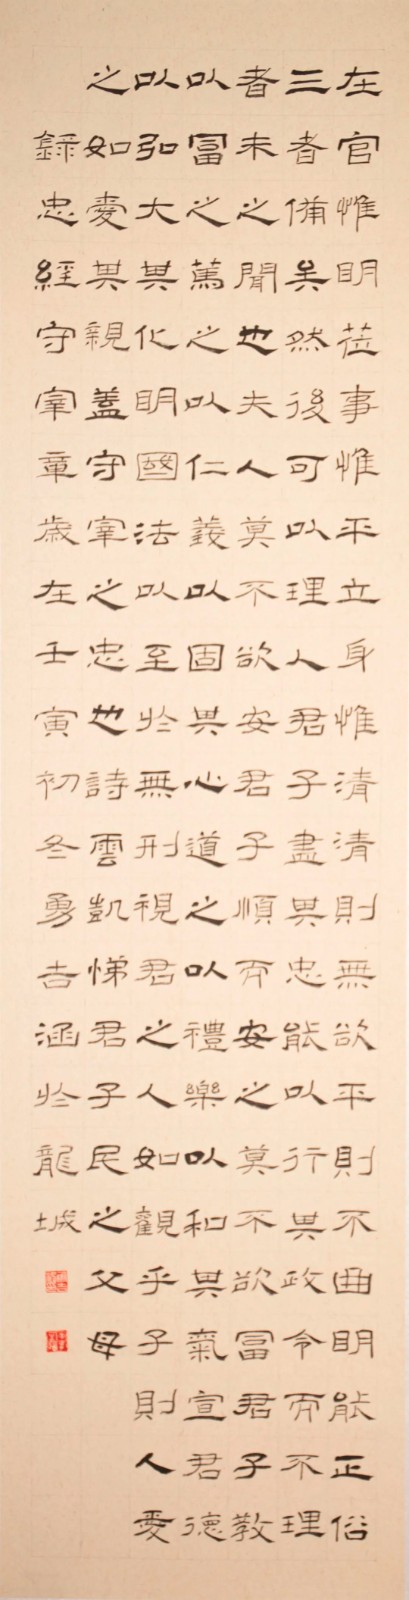 在官惟明莅事惟平立身惟清清則無欲平則不曲明能正俗
三者備矣然後可以理人君子盡其忠能以行其政令而不理
者未之聞也夫人莫不欲安君子順而安之莫不欲富君子教
以富之篤之以仁義以固其心道之以禮樂以和其氣宣君德
以弘大其化明國法以至於無刑視君之人如觀乎子則人愛
之如愛其親蓋守宰之忠也詩雲凱悌君子民之父母
錄忠經守宰章歲在壬寅初冬勇吉涵於龍城